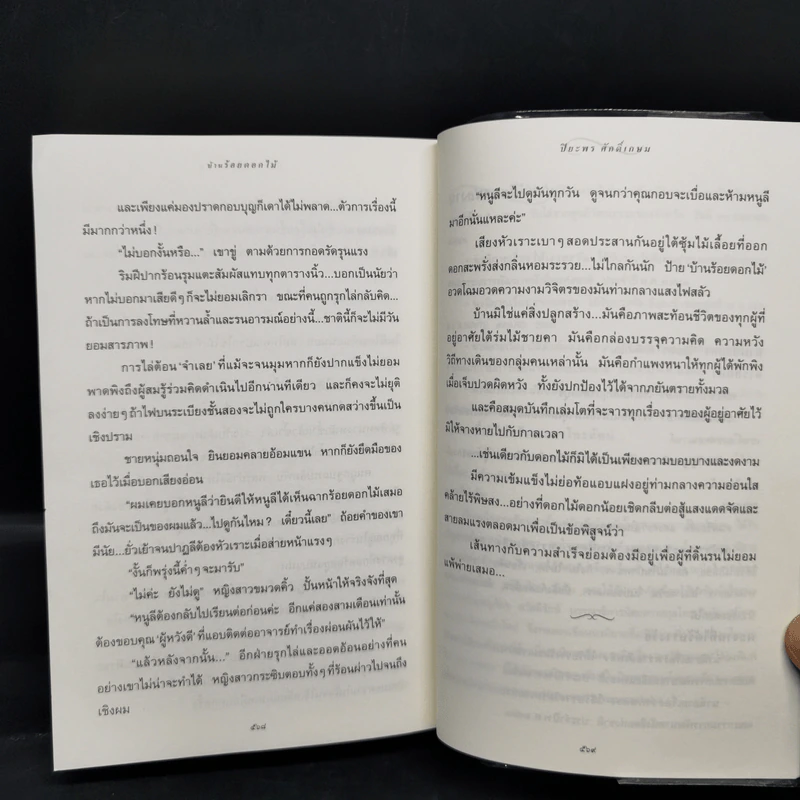 บ้านร้อยดอกไม้
และเพียงแค่มองปราดกอบบุญก็เดาได้ไม่พลาด...ตัวการเรื่องนี้
มีมากกว่าหนึ่ง!
“ไม่บอกงั้นหรือ...” เขาขู่ ตามด้วยการกอดรัดรุนแรง
ริมฝีปากร้อนรุมแตะสัมผัสแทบทุกตารางนิ้ว...บอกเป็นนัยว่า
หากไม่บอกมาเสียดีๆ ก็จะไม่ยอมเลิกรา ขณะที่คนถูกรุกไล่กลับคิด...
ถ้าเป็นการลงโทษที่หวานล้ำและรนอารมณ์อย่างนี้...ชาตินี้ก็จะไม่มีวัน
ยอมสารภาพ!
การไล่ต้อน ‘จำเลย’ ที่แม้จะจนมุมหากก็ยังปากแข็งไม่ยอม
พาดพิงถึงผู้สมรู้ร่วมคิดดำเนินไปอีกนานทีเดียว และก็คงจะไม่ยุติ
ลงง่ายๆ ถ้าไฟบนระเบียงชั้นสองจะไม่ถูกใครบางคนกดสว่างขึ้นเป็น
เชิงปราม
ชายหนุ่มถอนใจ ยินยอมคลายอ้อมแขน หากก็ยังยึดมือของ
เธอไว้เมื่อบอกเสียงอ่อน
“ผมเคยบอกหนูลีว่ายินดีให้หนูลีได้เห็นฉากร้อยดอกไม้เสมอ
ถึงมันจะเป็นของผมแล้ว...ไปดูกันไหม? เดี๋ยวนี้เลย” ถ้อยคำของเขา
มีนัย...ยั่วเย้าจนปาฎลีต้องหัวเราะเมื่อส่ายหน้าแรงๆ
“งั้นก็พรุ่งนี้ค่ำๆ จะมารับ”
“ไม่ค่ะ ยังไม่ดู” หญิงสาวขมวดคิ้ว ปั้นหน้าให้จริงจังที่สุด
“หนูลีต้องกลับไปเรียนต่อก่อนค่ะ อีกแค่สองสามเดือนเท่านั้น
ต้องขอบคุณ ‘ผู้หวังดี’ ที่แอบติดต่ออาจารย์ทำเรื่องผ่อนผันไว้ให้”
“แล้วหลังจากนั้น...” อีกฝ่ายรุกไล่และออดอ้อนอย่างที่คน
อย่างเขาไม่น่าจะทำได้ หญิงสาวกระซิบตอบทั้งๆ ที่ร้อนผ่าวไปจนถึง
เชิงผม
๕๖๘
ปิยะพร ศักดิ์เกษม
“หนูลีจะไปดูมันทุกวัน ดูจนกว่าคุณกอบจะเบื่อและห้ามหนูลี
มาอีกนั่นแหละค่ะ”
เสียงหัวเราะเบาๆ สอดประสานกันอยู่ใต้ซุ้มไม้เลื้อยที่ออก
ดอกสะพรั่งส่งกลิ่นหอมระรวย...ไม่ไกลกันนัก ป้าย ‘บ้านร้อยดอกไม้’
อวดโฉมอวดความงามวิจิตรของมันท่ามกลางแสงไฟสลัว
บ้านมิใช่แค่สิ่งปลูกสร้าง...มันคือภาพสะท้อนชีวิตของทุกผู้ที่
อยู่อาศัยใต้ร่มไม้ชายคา มันคือกล่องบรรจุความคิด ความหวัง
วิถีทางเดินของกลุ่มคนเหล่านั้น มันคือกำแพงหนาให้ทุกผู้ได้พักพิง
เมื่อเจ็บปวดผิดหวัง ทั้งยังปกป้องไว้ได้จากภยันตรายทั้งมวล
และคือสมุดบันทึกเล่มโตที่จะจารทุกเรื่องราวของผู้อยู่อาศัยไว้
มิให้จางหายไปกับกาลเวลา
...เช่นเดียวกับดอกไม้ก็มิได้เป็นเพียงความบอบบางและงดงาม
มีความเข้มแข็งไม่ย่อท้อแอบแฝงอยู่ท่ามกลางความอ่อนใส
คล้ายไร้พิษสง...อย่างที่ดอกไม้ดอกน้อยเชิดกลีบต่อสู้แสงแดดจัดและ
สายลมแรงตลอดมาเพื่อเป็นข้อพิสูจน์ว่า
เส้นทางกับความสำเร็จย่อมต้องมีอยู่เพื่อผู้ที่ดิ้นรนไม่ยอม
แพ้พ่ายเสมอ...
๕๖๙